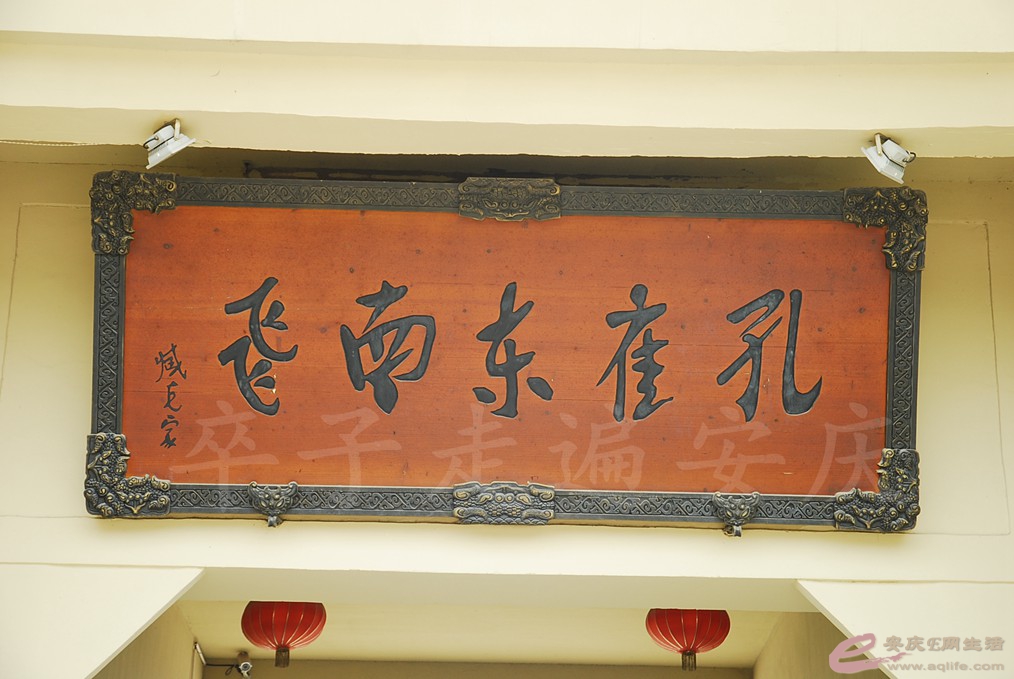 孔雀东南飞
臧克家
卒子走遍安庆
安庆E网生活
www.aqlife.com